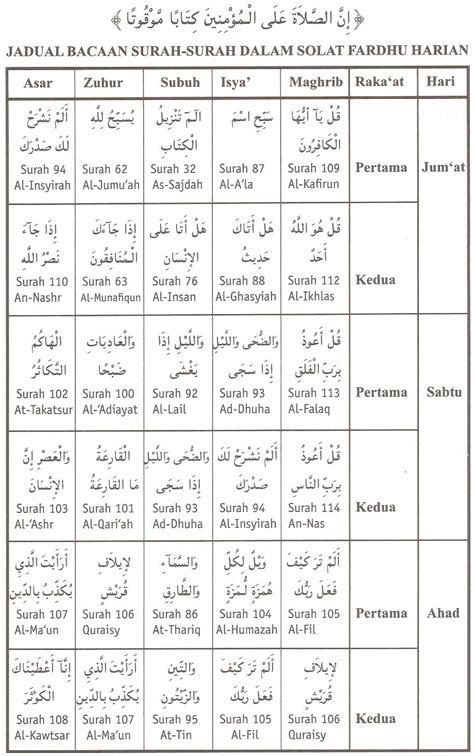 ﴿ إِنَّ الصَّلَاةَ عَلَى الْمُؤْمِنِينَ كِتَابًا مَوْقُوتًا ﴾
JADUAL BACAAN SURAH-SURAH DALAM SOLAT FARDHU HARIAN
Asar Zuhur Subuh Isya’ Maghrib Raka‘at Hari
أَلَمْ نَشْرَحْ يُسَبِّحُ لِلَّهِ الٓمٓ تَنْزِيلُ سَبِّحِ اسْمَ قُلْ يَا أَيُّهَا
لَكَ صَدْرَكَ الْكِتَابِ الْكَافِرُونَ
Surah 94 Surah 62 Surah 32 Surah 87 Surah 109 Pertama Jum‘at
Al-Insyirah Al-Jumu’ah As-Sajdah Al-A’la Al-Kafirun
إِذَا جَآءَ إِذَا جَآءَكَ هَلْ أَتَا عَلَى هَلْ أَتَاكَ قُلْ هُوَ اللَّهُ
نَصْرُ اللَّهِ الْمُنَافِقُونَ الْإِنْسَانِ حَدِيثُ أَحَدٌ
Surah 110 Surah 63 Surah 76 Surah 88 Surah 112 Kedua
An-Nashr Al-Munafiqun Al-Insan Al-Ghasyiah Al-Ikhlas
الْهَاكُمُ وَالْعَادِيَاتِ وَاللَّيْلِ إِذَا وَالضُّحَى وَاللَّيْلِ قُلْ أَعُوذُ
التَّكَاثُرُ ضَبْحًا يَغْشَى إِذَا سَجَى بِرَبِّ الْفَلَقِ
Surah 102 Surah 100 Surah 92 Surah 93 Surah 113 Pertama Sabtu
At-Takatsur Al-‘Adiyat Al-Lail Ad-Dhuha Al-Falaq
وَالْعَصْرِ إِنَّ الْقَارِعَةُ وَالضُّحَى وَاللَّيْلِ أَلَمْ نَشْرَحْ لَكَ قُلْ أَعُوذُ
الْإِنْسَانَ مَا الْقَارِعَةُ إِذَا سَجَى صَدْرَكَ بِرَبِّ النَّاسِ
Surah 103 Surah 101 Surah 93 Surah 94 Surah 114 Kedua
Al-‘Ashr Al-Qari’ah Ad-Dhuha Al-Insyirah An-Nas
أَرَأَيْتَ الَّذِي لِإِيلَافِ وَالسَّمَآءِ وَيْلٌ لِكُلِّ أَلَمْ تَرَ كَيْفَ
يُكَذِّبُ بِالدِّينِ قُرَيْشٍ وَالطَّارِقِ هُمَزَةٍ لُمَزَةٍ فَعَلَ رَبُّكَ
Surah 107 Surah 106 Surah 86 Surah 104 Surah 105 Pertama Ahad
Al-Ma’un Quraisy At-Thariq Al-Humazah Al-Fil
إِنَّآ أَعْطَيْنَاكَ أَرَأَيْتَ الَّذِي وَالتِّينِ أَلَمْ تَرَ كَيْفَ لِإِيلَافِ
الْكَوْثَرَ يُكَذِّبُ بِالدِّينِ وَالزَّيْتُونِ فَعَلَ رَبُّكَ قُرَيْشٍ
Surah 108 Surah 107 Surah 95 Surah 105 Surah 106 Kedua
Al-Kawtsar Al-Ma’un At-Tin Al-Fil Quraisy